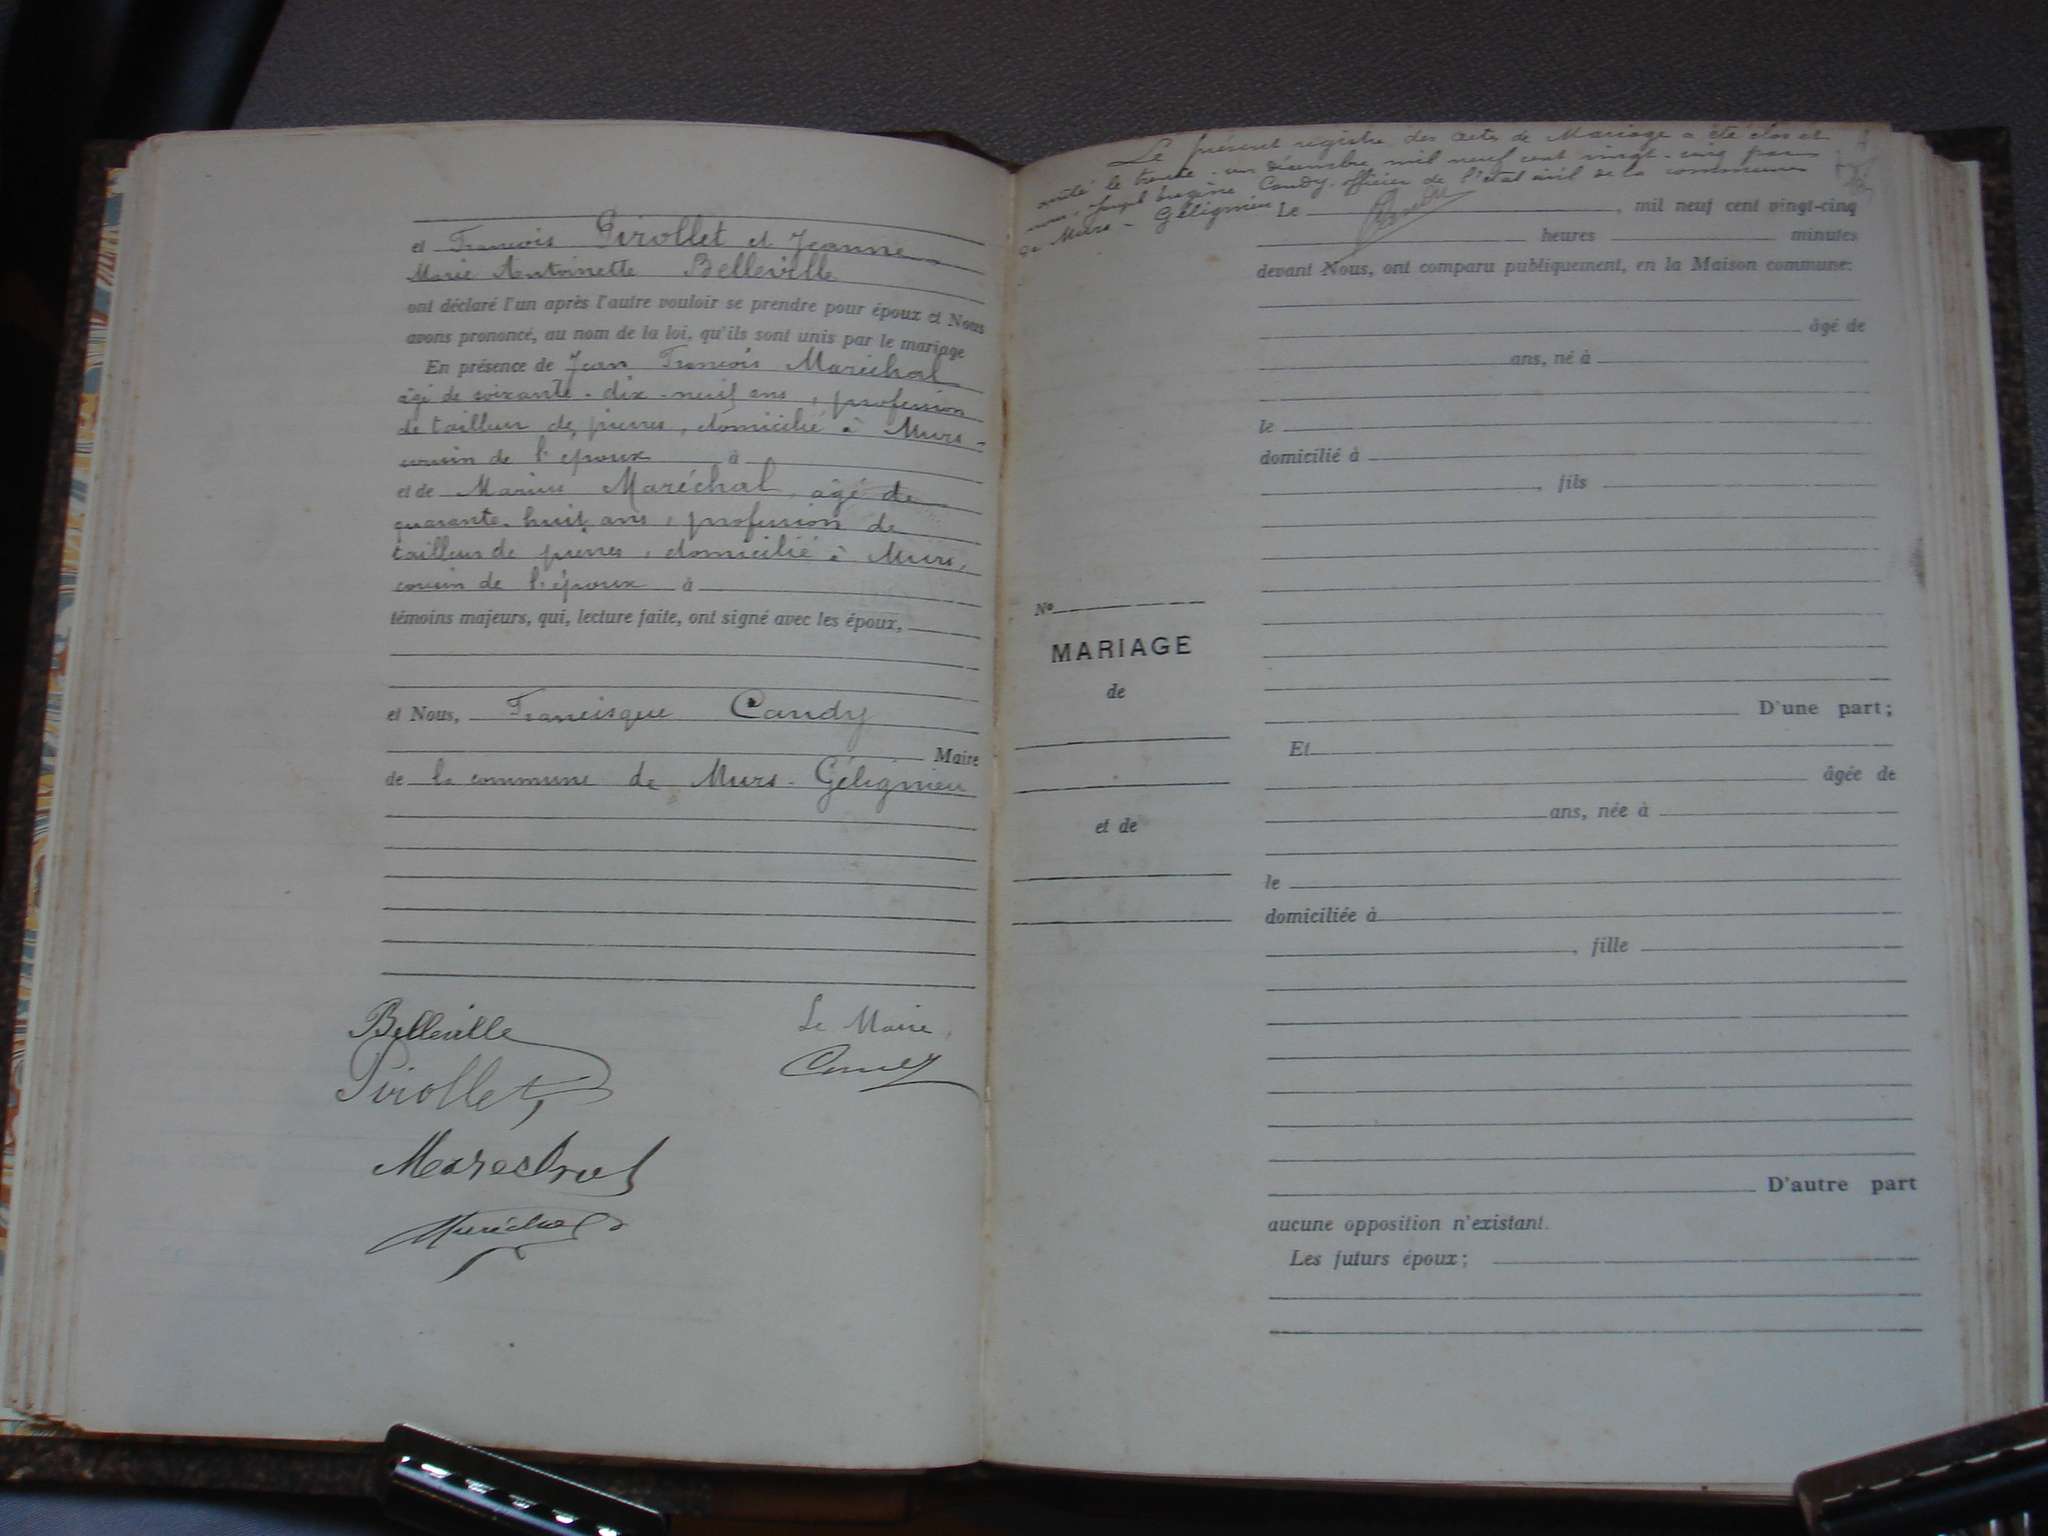 et François Pirollet et Jeanne
Marie Antoinette Belleville
ont déclaré l'un après l'autre vouloir se prendre pour époux et Nous
avons prononcé, au nom de la loi, qu'ils sont unis par le mariage
En présence de Jean François Maréchal
âgé de soixante-dix-neuf ans, profession
de tailleur de pierres, domicilié à Murs-
cousin de l'époux à
et de Marius Maréchal, âgé de
quarante-huit ans, profession de
tailleur de pierres, domicilié à Murs,
cousin de l'époux à
témoins majeurs, qui, lecture faite, ont signé avec les époux,
et Nous, Francisque Candy
Maire
de la commune de Murs-Gélignieu
Belleville
Le Maire,
Pirollet
Candy
Marechal
Maréchal
Le présent registre des actes de Mariage a été clos et
arrêté le trente-un décembre mil neuf cent vingt-cinq par
nous, Joseph Eugène Candy, officier de l'état civil de la commune
de Murs-Gélignieu
Le , mil neuf cent vingt-cinq
heures minutes
devant Nous, ont comparu publiquement, en la Maison commune:
âgé de
ans, né à
le
domicilié à
, fils
No
MARIAGE
de
et de
D'une part;
Et
âgée de
ans, née à
le
domiciliée à
, fille
D'autre part
aucune opposition n'existant.
Les futurs époux;